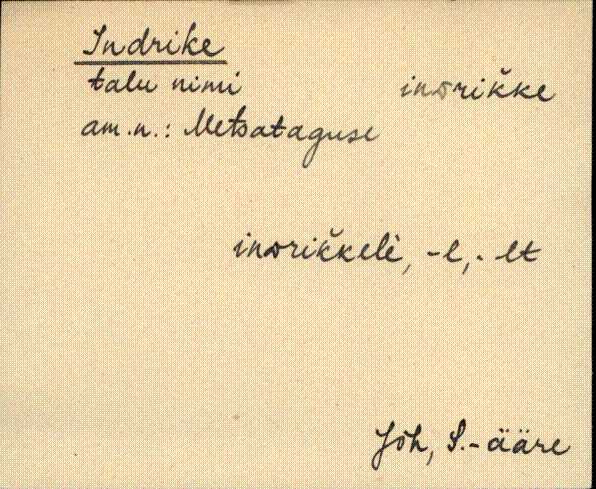 Indrike
talu nimi inᴅrik̆ke
am.n.: Metsataguse
inᴅrik̆kelè, -l, -lt
Jõh, S.-ääre